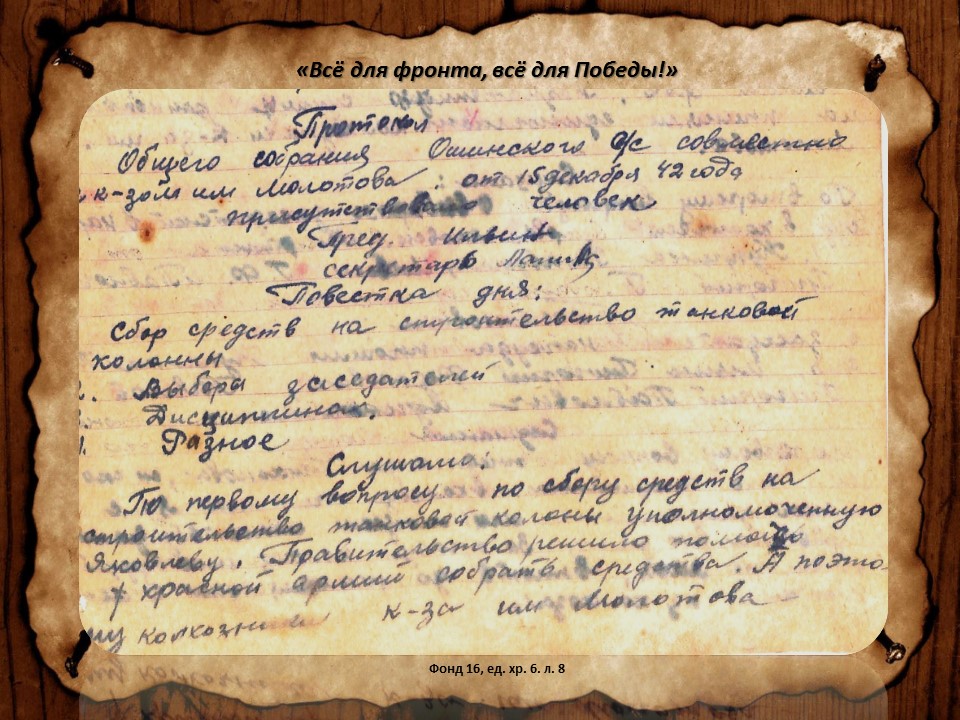 «Всё для фронта, всё для Победы!»
Протокол
Общего собрания Ошинского с/с совместно
к-зом им Молотова. от 15 декабря 42 года
присутствовало человек
Пред.
секретарь
Повестка дня:
Сбор средств на строительство танковой
колонны
2. Выборы заседателей
Дисциплина.
Разное
Слушали:
По первому вопросу по сбору средств на
строительство танковой колоны уполномоченную
Яковлеву. Правительство решило помощь
красной армии собрать средства. А поэто
му к-за им Молотова
Фонд 16, ед. хр. 6. л. 8